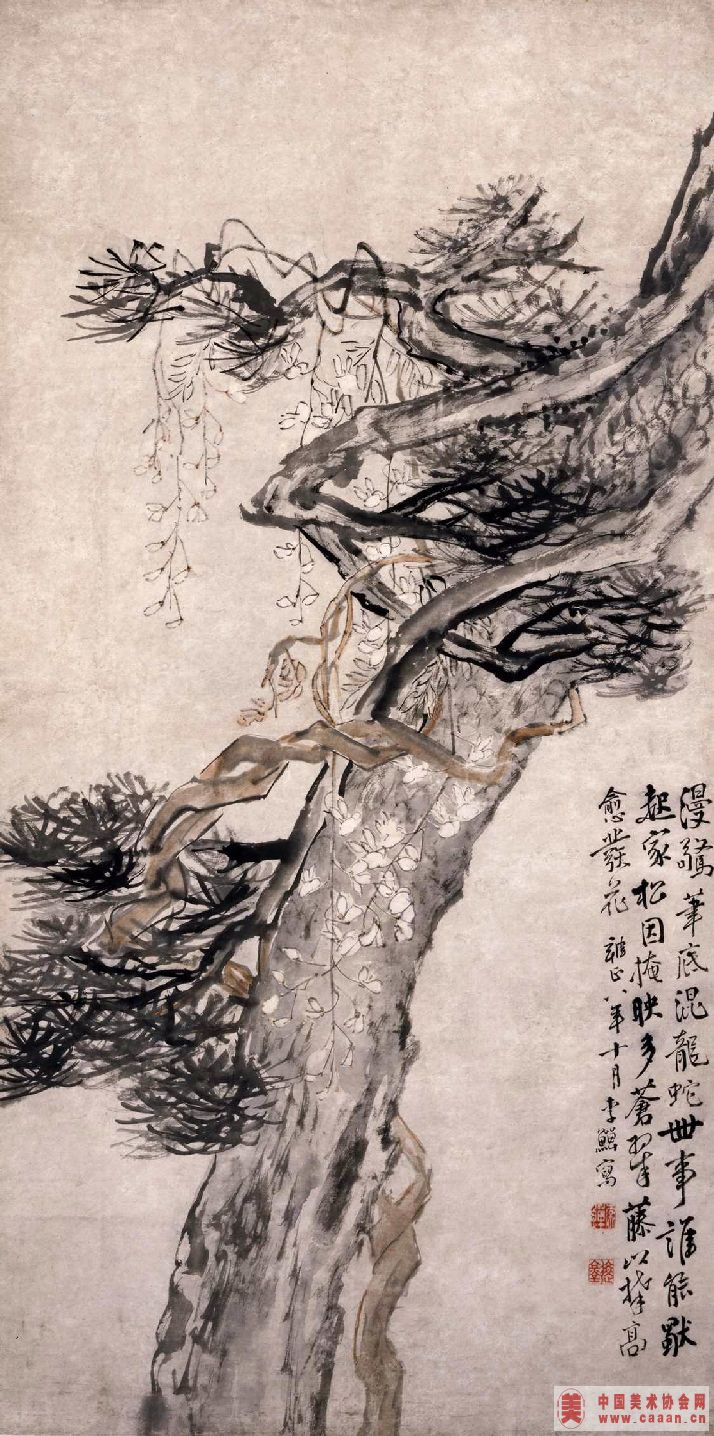 漫驚筆底混龍蛇世事誰能獨
起家松因掩映多蒼翠藤以攀高
愈發花 雍正八年十月李鱓寫
美
中国美术协会网
www.caaan.cn